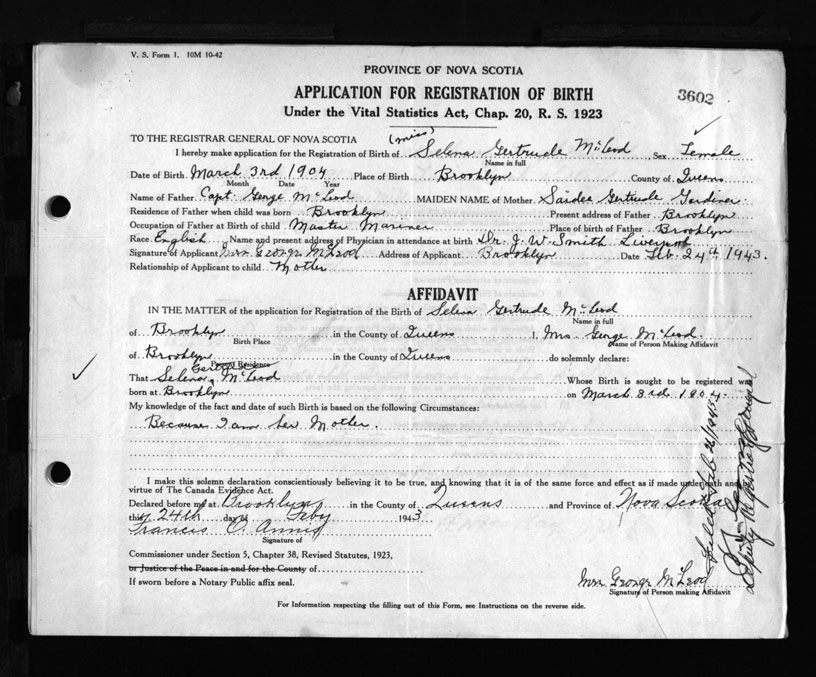 V. S. Form 1. 10M 10-42
PROVINCE OF NOVA SCOTIA
APPLICATION FOR REGISTRATION OF BIRTH
3602
Under the Vital Statistics Act, Chap. 20, R. S. 1923
TO THE REGISTRAR GENERAL OF NOVA SCOTIA
(miss)
I hereby make application for the Registration of Birth of Selena Gertrude McLeod Sex Female
Name in full
Date of Birth March 3rd 1904 Place of Birth Brooklyn County of Queens
Month Date Year
Name of Father Capt. George McLeod MAIDEN NAME of Mother Saidee Gertrude Gardiner
Residence of Father when child was born Brooklyn Present address of Father Brooklyn
Occupation of Father at Birth of child Master Mariner Place of birth of Father Brooklyn
Race English Name and present address of Physician in attendance at birth Dr. J. W. Smith Liverpool
Signature of Applicant Mrs George McLeod Address of Applicant Brooklyn Date Feb. 24th 1943.
Relationship of Applicant to child Mother
AFFIDAVIT
IN THE MATTER of the application for Registration of the Birth of Selena Gertrude McLeod
Name in full
of Brooklyn in the County of Queens I, Mrs. George McLeod.
Birth Place Name of Person Making Affidavit
of Brooklyn in the County of Queens do solemnly declare:
Present Residence
That Selena Gert. McLeod Whose Birth is sought to be registered was
born at Brooklyn on March 3rd 1904.
My knowledge of the fact and date of such Birth is based on the following Circumstances:
Because I am her Mother.
I make this solemn declaration conscientiously believing it to be true, and knowing that it is of the same force and effect as if made under oath and
virtue of The Canada Evidence Act.
Declared before me at Brooklyn in the County of Queens and Province of Nova Scotia
this 24th day of Feby 1943
Francis O. Annis
Signature of
Commissioner under Section 5, Chapter 38, Revised Statutes, 1923,
or Justice of the Peace in and for the County of
If sworn before a Notary Public affix seal.
Mrs George McLeod
Signature of Person making Affidavit
For Information respecting the filling out of this Form, see Instructions on the reverse side.
Deputy Registrar General